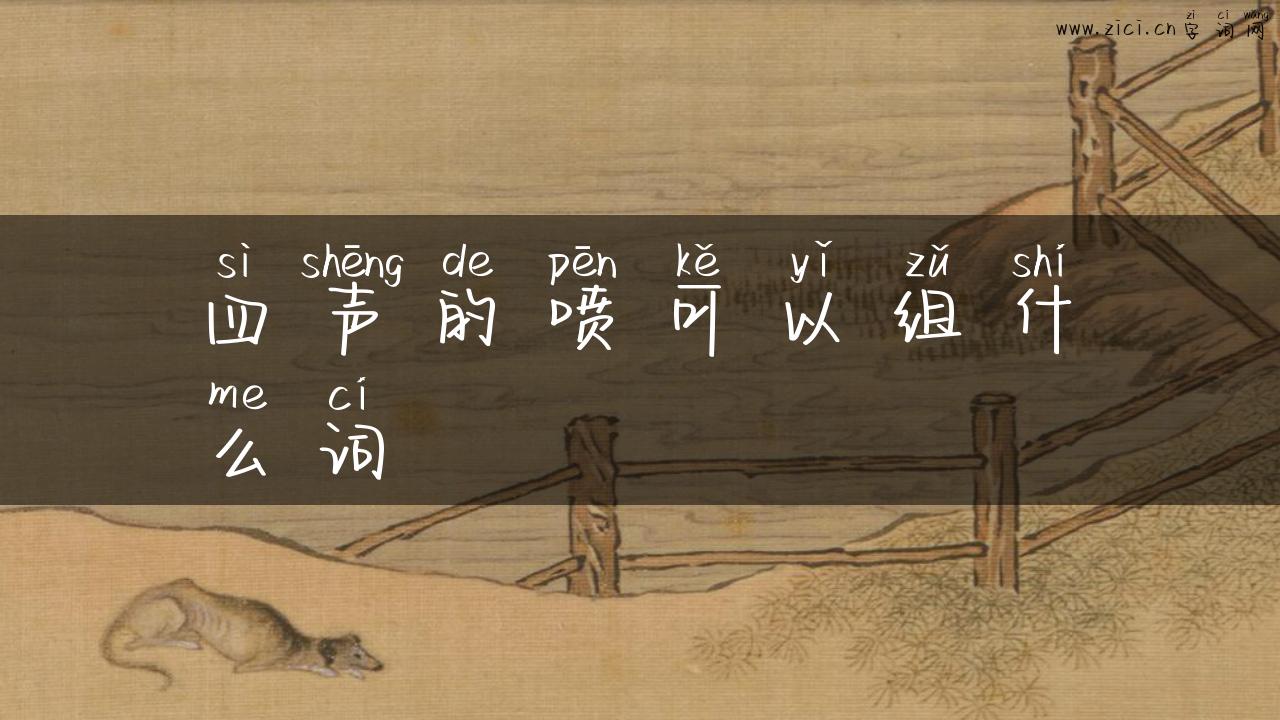 zi ci wang
www.zici.cn 字词网
sì shēng de pēn kě yǐ zǔ shí
四声的喷可以组什
me cí
么词